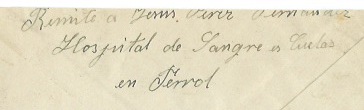 Remite a Jesús Pérez Fernández
Hospital de Sangre
en Ferrol